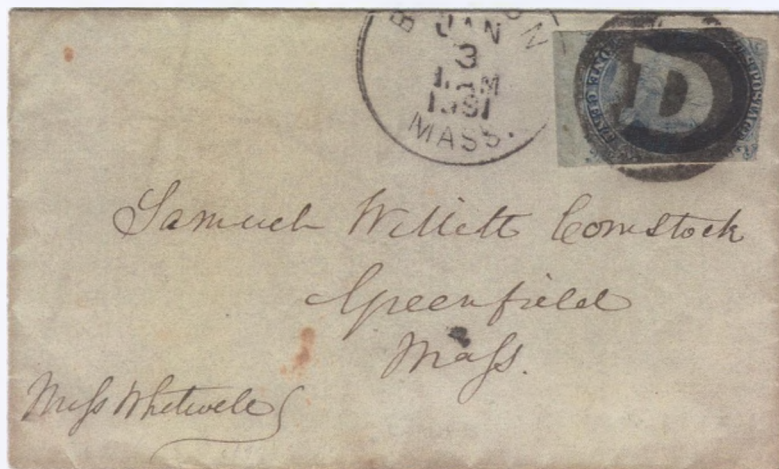 BOSTON
JAN
3
11 AM
1881
MASS.
D
ONE CENT
POSTAGE
Samuel Willett Comstock
Greenfield
Mass.
Miss Whitwell